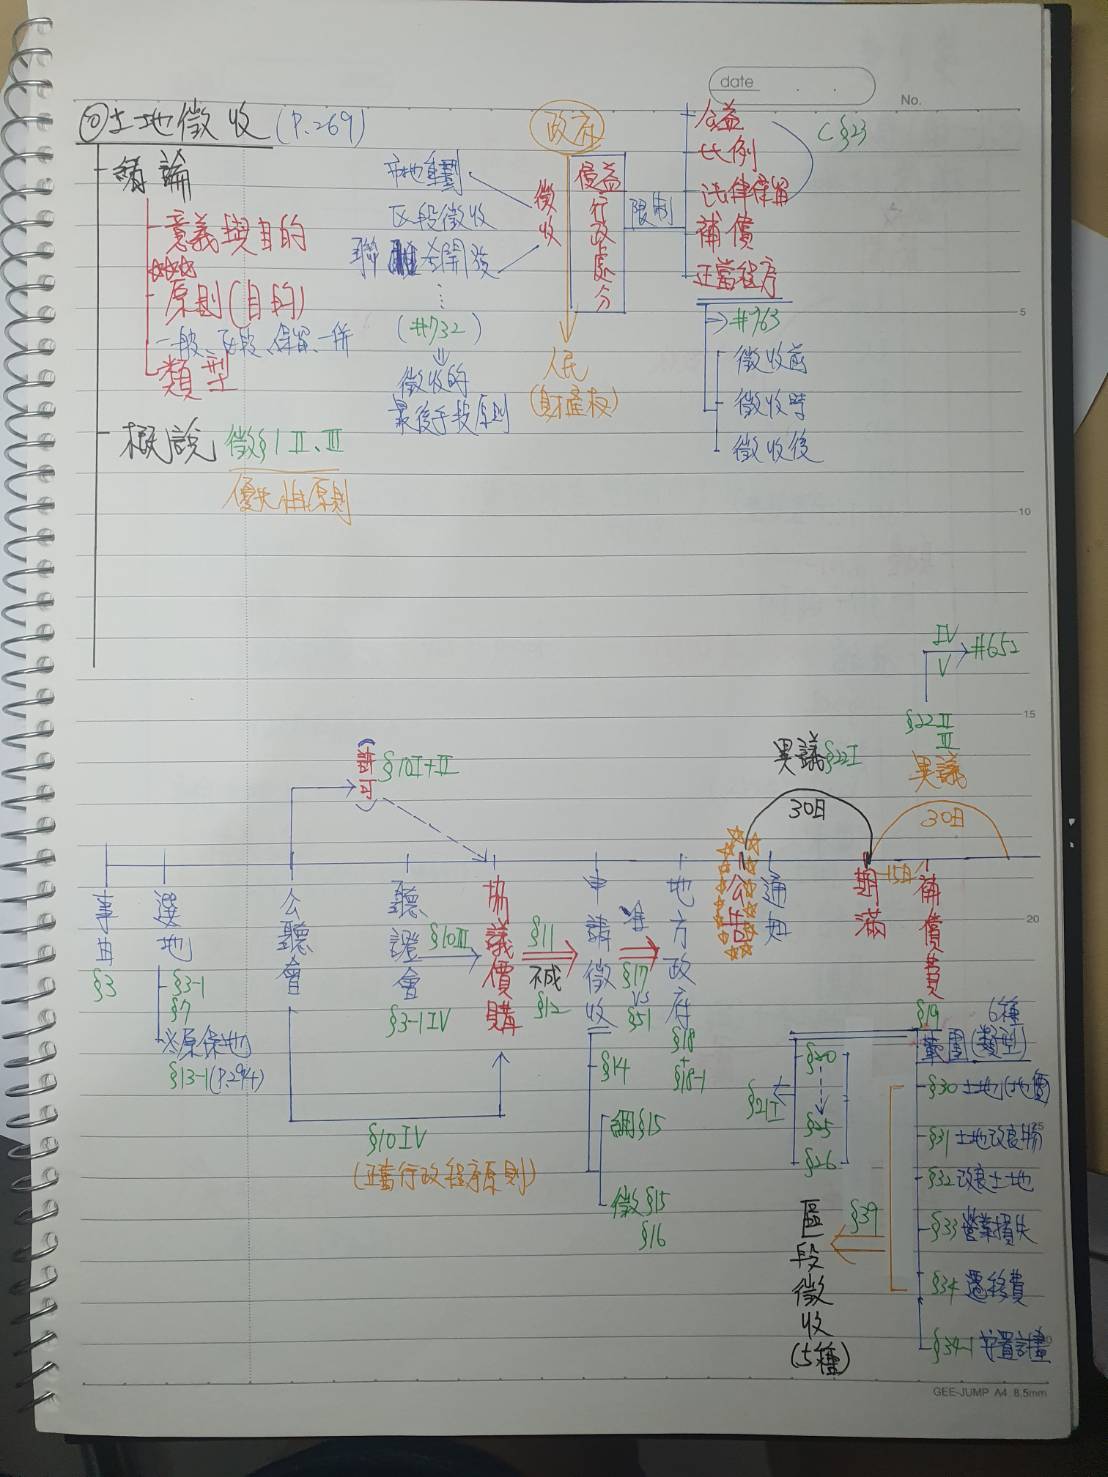 date
No.
土地徵收 (P.269)
緒論
意義與目的
原則(目的)
一般、區段、保留、一併
類型
概說 徵§1 II、III
優先性原則
市地重劃
區段徵收
聯合開發
(#732)
徵收的
最後手段原則
政府
徵收
侵益行政處分
人民
(財產权)
限制
公益
比例
法律保留
補償
正當程序
C §23
#763
徵收前
徵收時
徵收後
5
10
15
20
IV
V
#652
§22 II
III
異議
30日
異議§22I
30日
(許可)
§10I+II
事由
§3
選地
§3-1
§7
※原保地
§13-1(P.294)
公聽會
§10IV
(正當行政程序原則)
聽證會
§3-1 IV
§10III
協議價購
§11
不成
§12
申請徵收
§14
調§15
徵§15
§16
准
§17
VS
§51
地方政府
§18
+
§18-1
公告
通知
期滿
15日
補償費
§19
§20
§25
§26
§21I
6種
範圍(類型)
§30 土地(地價)
§31 土地改良物
§32 改良土地
§33 營業損失
§34 遷移費
§34-1 安置計畫
§39
區段徵收
(5種)
GEE-JUMP A4 8.5mm